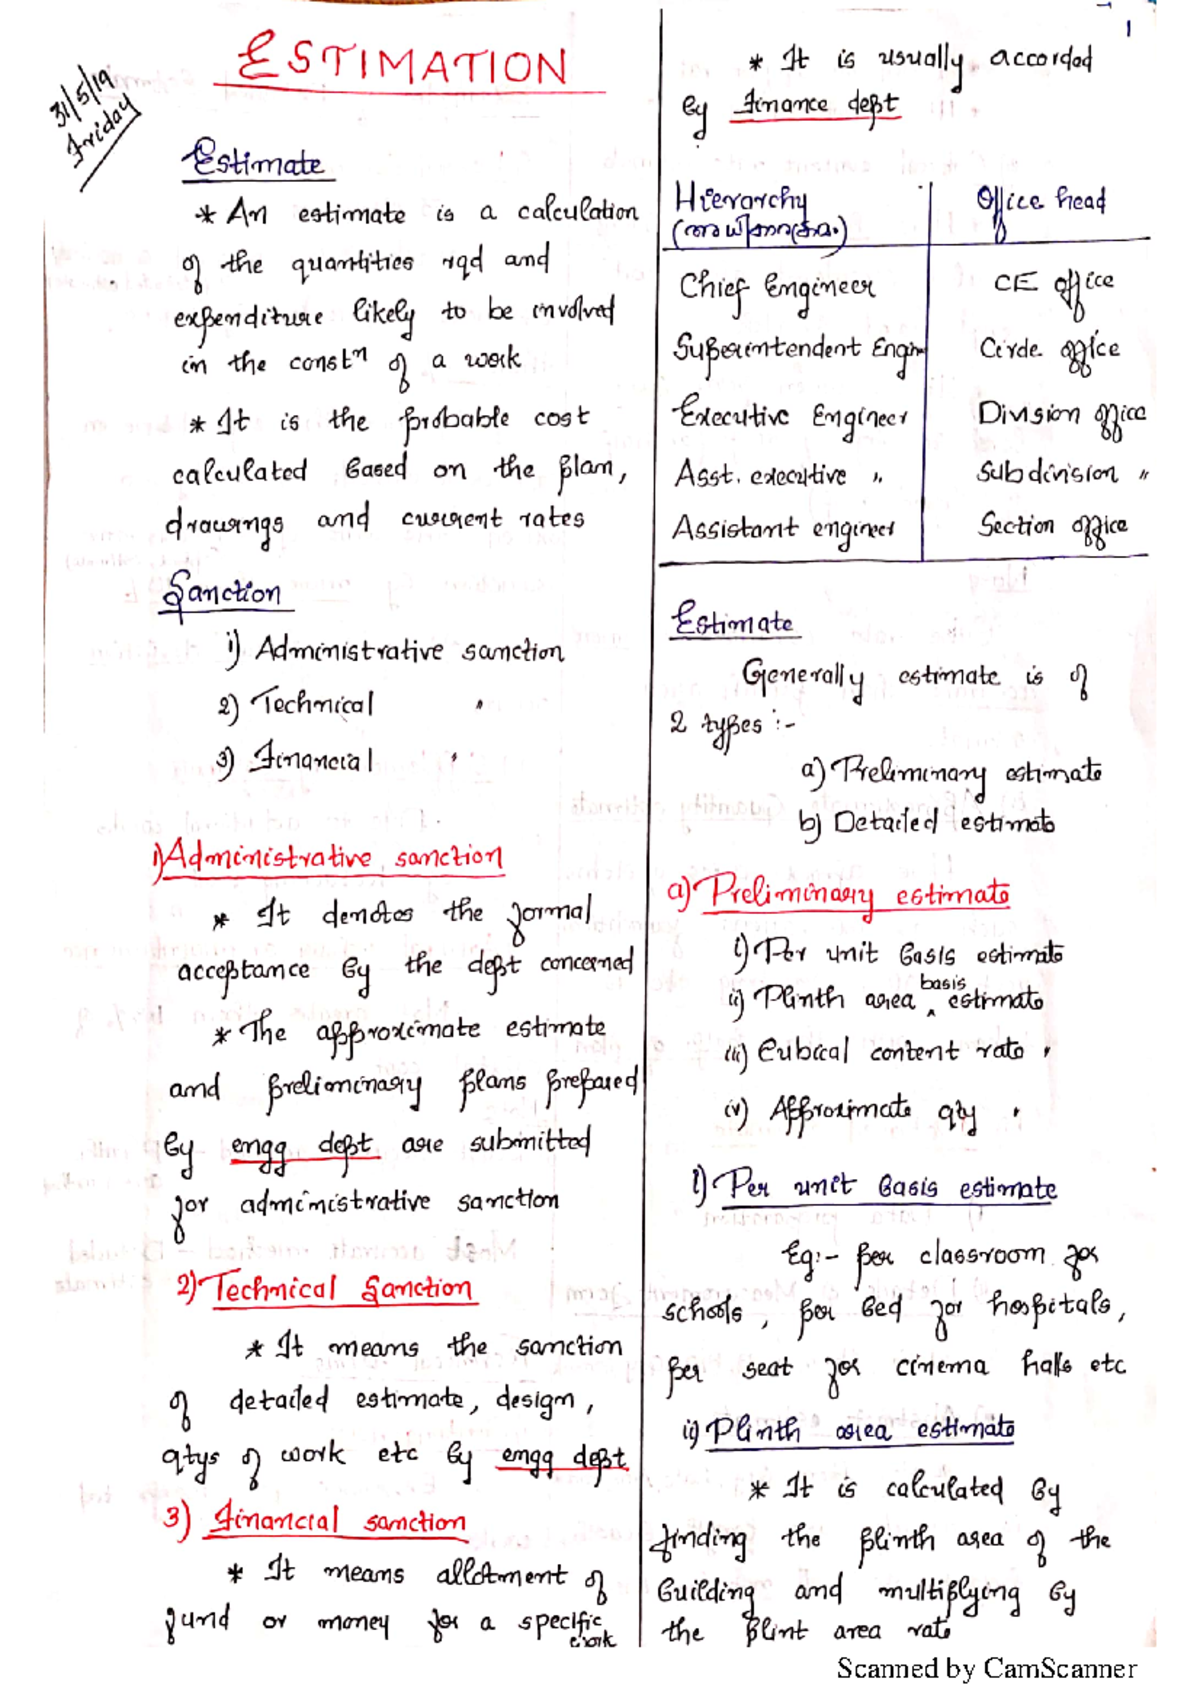 31/5/19
Friday
ESTIMATION
Estimate
* An estimate is a calculation
of the quantities rqd and
expenditure likely to be involved
in the constn of a work
* It is the probable cost
calculated based on the plan,
drawings and current rates
Sanction
i) Administrative sanction
2) Technical "
3) Financial "
1) Administrative sanction
* It denotes the formal
acceptance by the dept concerned
* The approximate estimate
and prelimonary plans prepared
by engg dept are submitted
for administrative sanction
2) Technical Sanction
* It means the sanction
of detailed estimate, design,
qtys of work etc by engg dept
3) Financial sanction
* It means allotment of
fund or money for a specific
work
1
* It is usually accorded
by Finance dept
Hierarchy Office head
Chief Engineer CE office
Superintendent Engr Circle office
Executive Engineer Division office
Asst. executive " Subdivision "
Assistant engineer Section office
Estimate
Generally estimate is of
2 types :-
a) Preliminary estimate
b) Detailed estimate
a) Preliminary estimate
i) Per unit basis estimate
ii) Plinth area basis estimate
iii) Cubical content rate "
iv) Approximate qty "
i) Per unit basis estimate
Eg:- per classroom for
schools, per bed for hospitals,
per seat for cinema halls etc
ii) Plinth area estimate
* It is calculated by
finding the plinth area of the
building and multiplying by
the plint area rate
Scanned by CamScanner